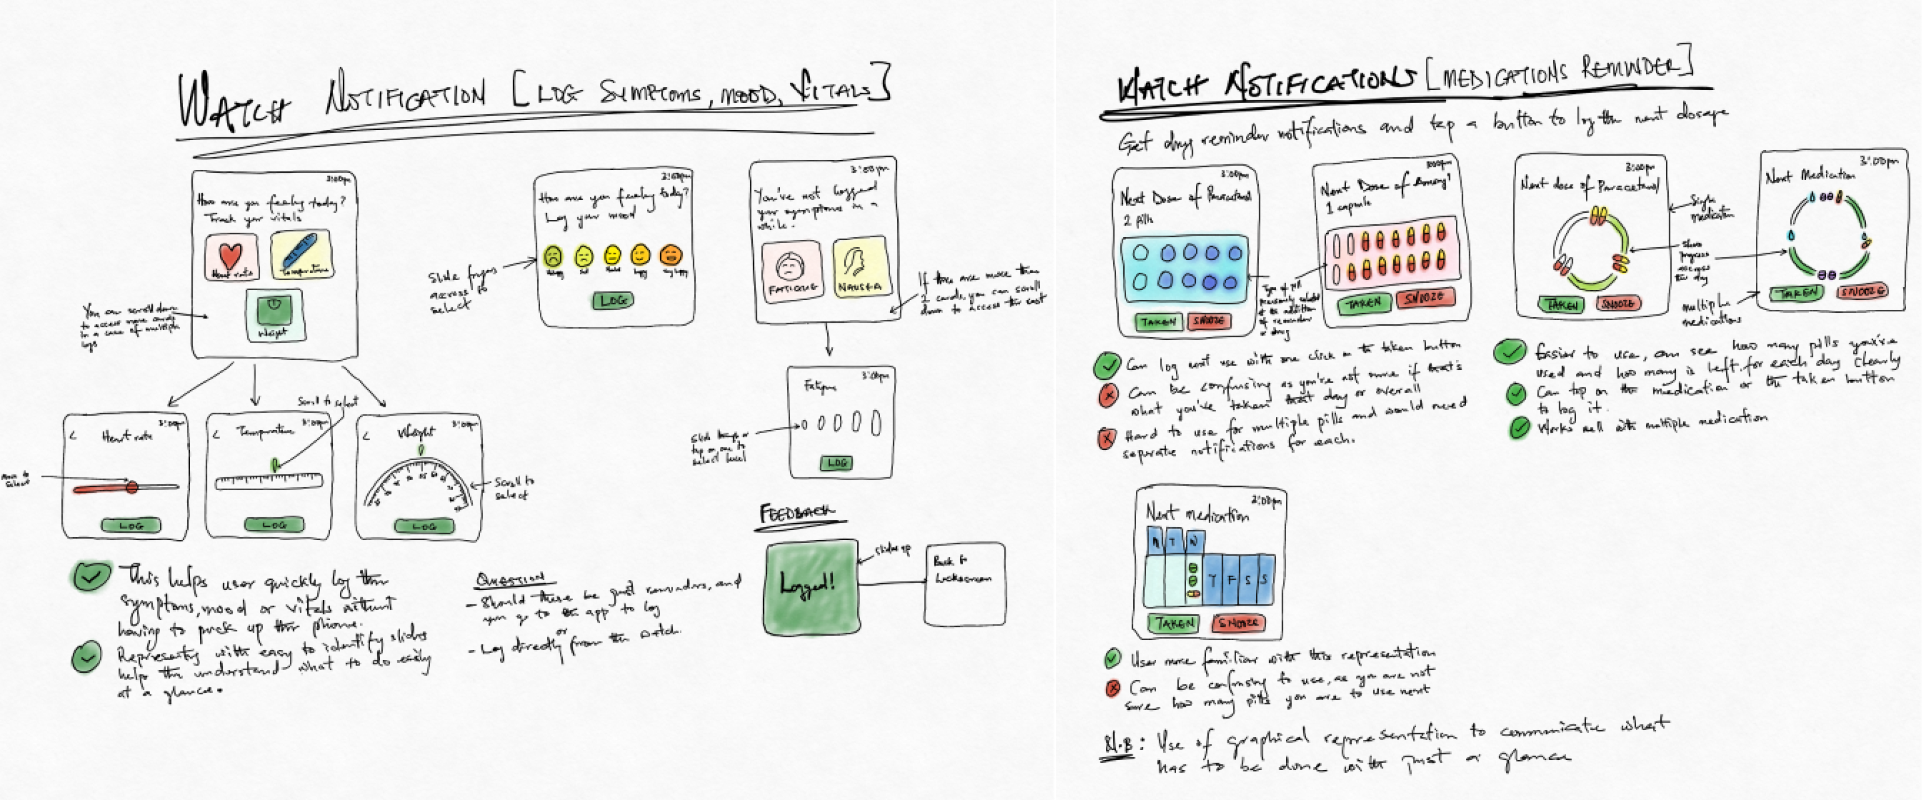 WATCH NOTIFICATION [LOG SYMPTOMS, MOOD, VITALS]
3:00pm
How are you feeling today?
Track your vitals
Heart rate
Temperature
Weight
You can scroll down
to access more cards
in a case of multiple
logs
3:00pm
How are you feeling today?
Log your mood
Happy
LOG
Slide fingers
across to
select
3:00pm
You've not logged
your symptoms in a
while.
FATIGUE
NAUSEA
If there are more than
2 cards, you can scroll
down to access the rest
3:00pm
Fatigue
LOG
tap on one to
select level
Scroll to select
3:00pm
Heart rate
LOG
select
3:00pm
Temperature
LOG
3:00pm
Weight
LOG
Scroll to
select
This helps user quickly log their
symptoms, mood or vitals without
having to pick up their phone.
Represents with easy to identify slides
help them understand what to do easily
at a glance.
QUESTION
- Should these be just reminders, and
you go to the app to log
or
- Log directly from the watch.
FEEDBACK
Logged!
slides up
Back to
Lockscreen
WATCH NOTIFICATIONS [MEDICATIONS REMINDER]
Get drug reminder notifications and tap a button to log the next dosage
3:00pm
Next Dose of Paracetamol
2 pills
TAKEN
SNOOZE
Type of pill
previously selected
at the addition
of reminder
or drug
3:00pm
Next Dose of
1 capsule
TAKEN
SNOOZE
3:00pm
Next dose of Paracetamol
TAKEN
SNOOZE
Single
medication
Shows
progress
across the
day
multiple
medications
3:00pm
Next Medication
TAKEN
SNOOZE
Can log next use with one click on the taken button
Can be confusing as you're not sure if that's
what you've taken that day or overall
Hard to use for multiple pills and would need
separate notifications for each.
Easier to use, can see how many pills you've
used and how many is left for each day clearly
Can tap on the medication or the taken button
to log it.
Works well with multiple medication
3:00pm
Next medication
M T W
T F S S
TAKEN
SNOOZE
User more familiar with this representation
Can be confusing to use, as you are not
sure how many pills you are to use next
N.B: Use of graphical representation to communicate what
has to be done with just a glance